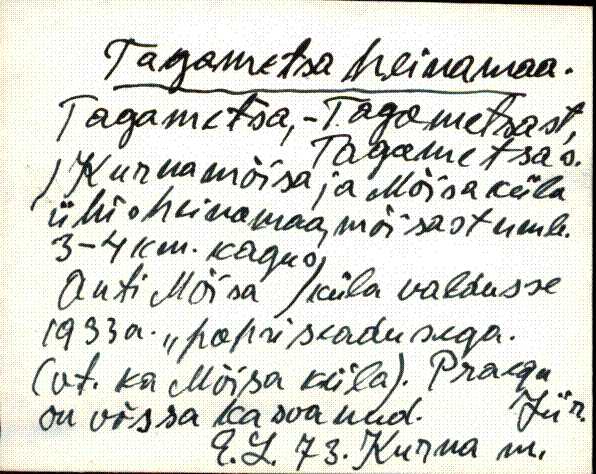 Tagametsa heinamaa.
Tagametsa, - Tagametsast,
Tagametsas.
/Kurna mõisa ja Mõisaküla
ühisheinamaa, mõisast umb.
3-4 km. kagus/
Anti Mõisa /küla valdusse
1933 a. „popsiseadusega.
(vt. ka Mõisa küla). Praegu
on võssa kasvanud. Jür.
E.L. 73. Kurna m.